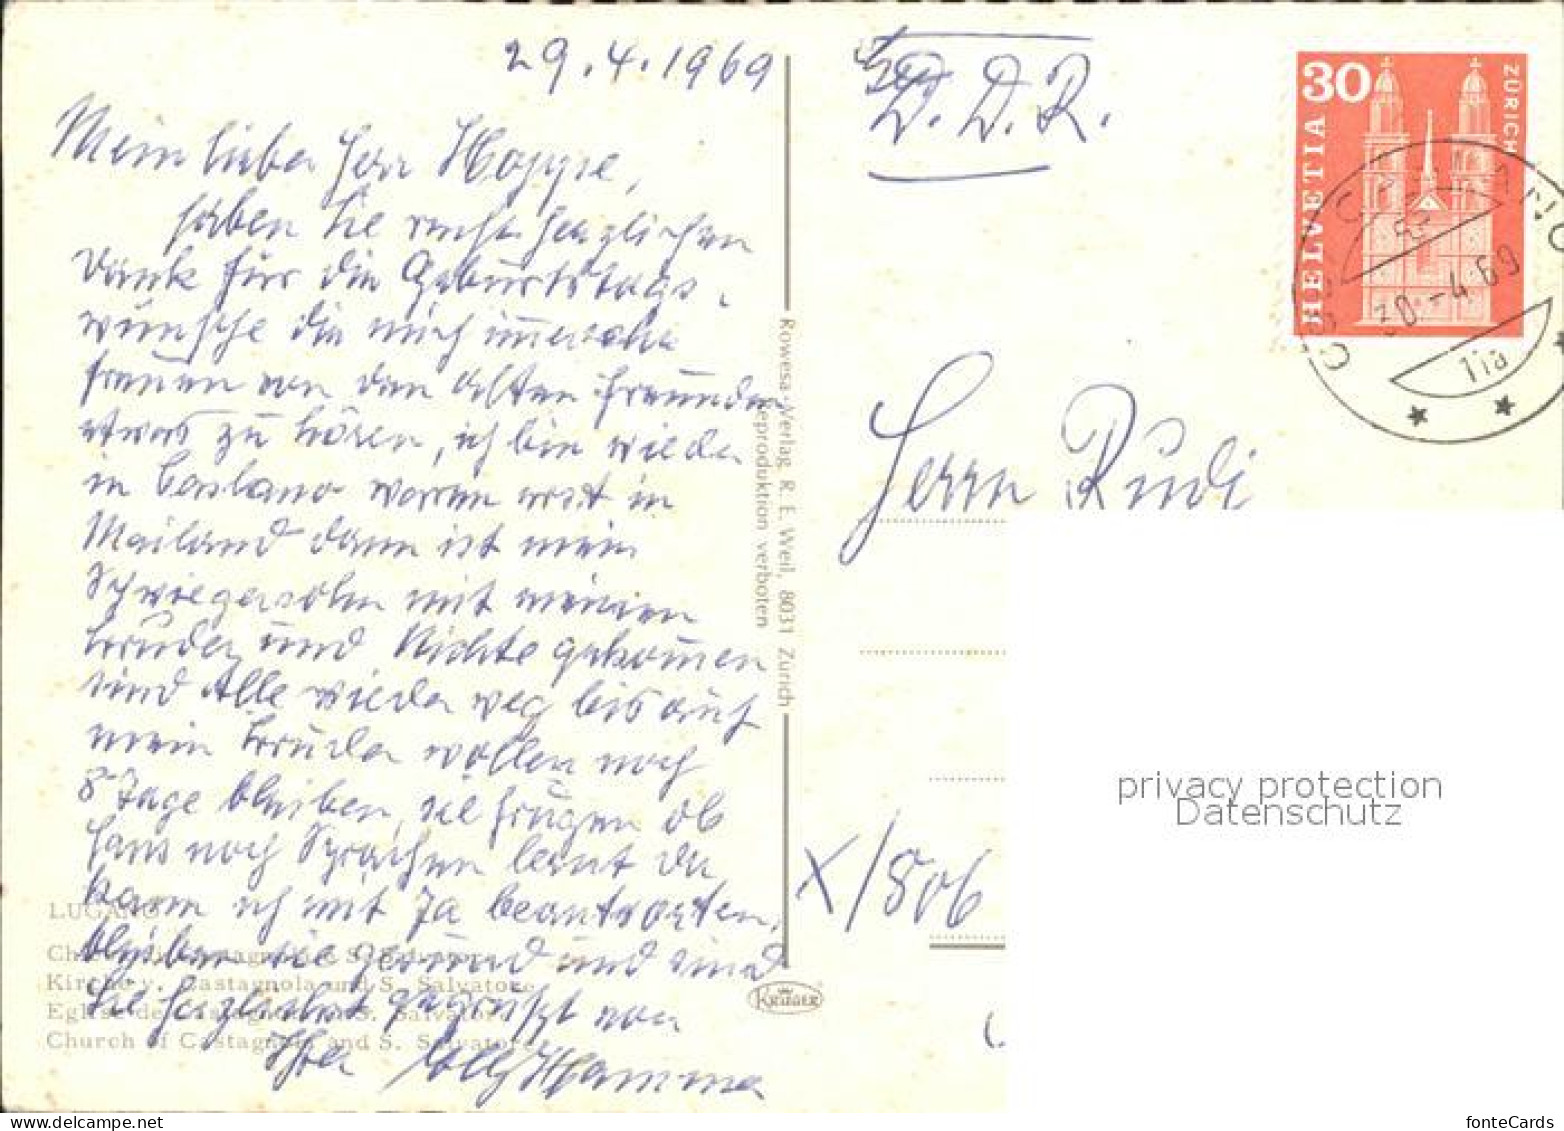 29.4.1969
Mein lieber Herr Hoppe,
haben Sie recht herzlichen
Dank für die Geburtstags-
wünsche die mich immer sehr
freuen von den alten Freunden
etwas zu hören, ich bin wieder
in Caslano waren erst in
Mailand dann ist mein
Schwiegersohn mit meinem
Bruder und Nichte gekommen
sind Alle wieder weg bis auf
mein Bruder wollen noch
8 Tage bleiben, sie frugen ob
Hans noch Sprachen lernt da
kann ich mit Ja beantworten,
bleiben sie gesund und sind
Sie herzlichst gegrüßt von
Ihrer Elly Hamma
LUGANO
Chiesa di Castagnola e S. Salvatore
Kirche v. Castagnola und S. Salvatore
Eglise de Castagnola et S. Salvatore
Church of Castagnola and S. Salvatore
Rowesa-Verlag R. E. Weil, 8031 Zürich
Reproduktion verboten
KRÜGER
D. D. R.
30
HELVETIA
ZÜRICH
30.-4.69
11a
Herrn Rudi
X/806
privacy protection
Datenschutz
www.delcampe.net
fonteCards